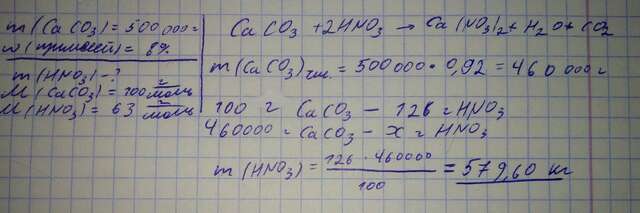 m(CaCO3) = 500 000 г
ω(примесей) = 8%
m(HNO3) - ?
M(CaCO3) = 100 г/моль
M(HNO3) = 63 г/моль
CaCO3 + 2HNO3 → Ca(NO3)2 + H2O + CO2
m(CaCO3)чист. = 500000 · 0,92 = 460 000 г
100 г CaCO3 - 126 г HNO3
460000 г CaCO3 - x г HNO3
m(HNO3) = 126 · 460000 / 100 = 579,60 кг